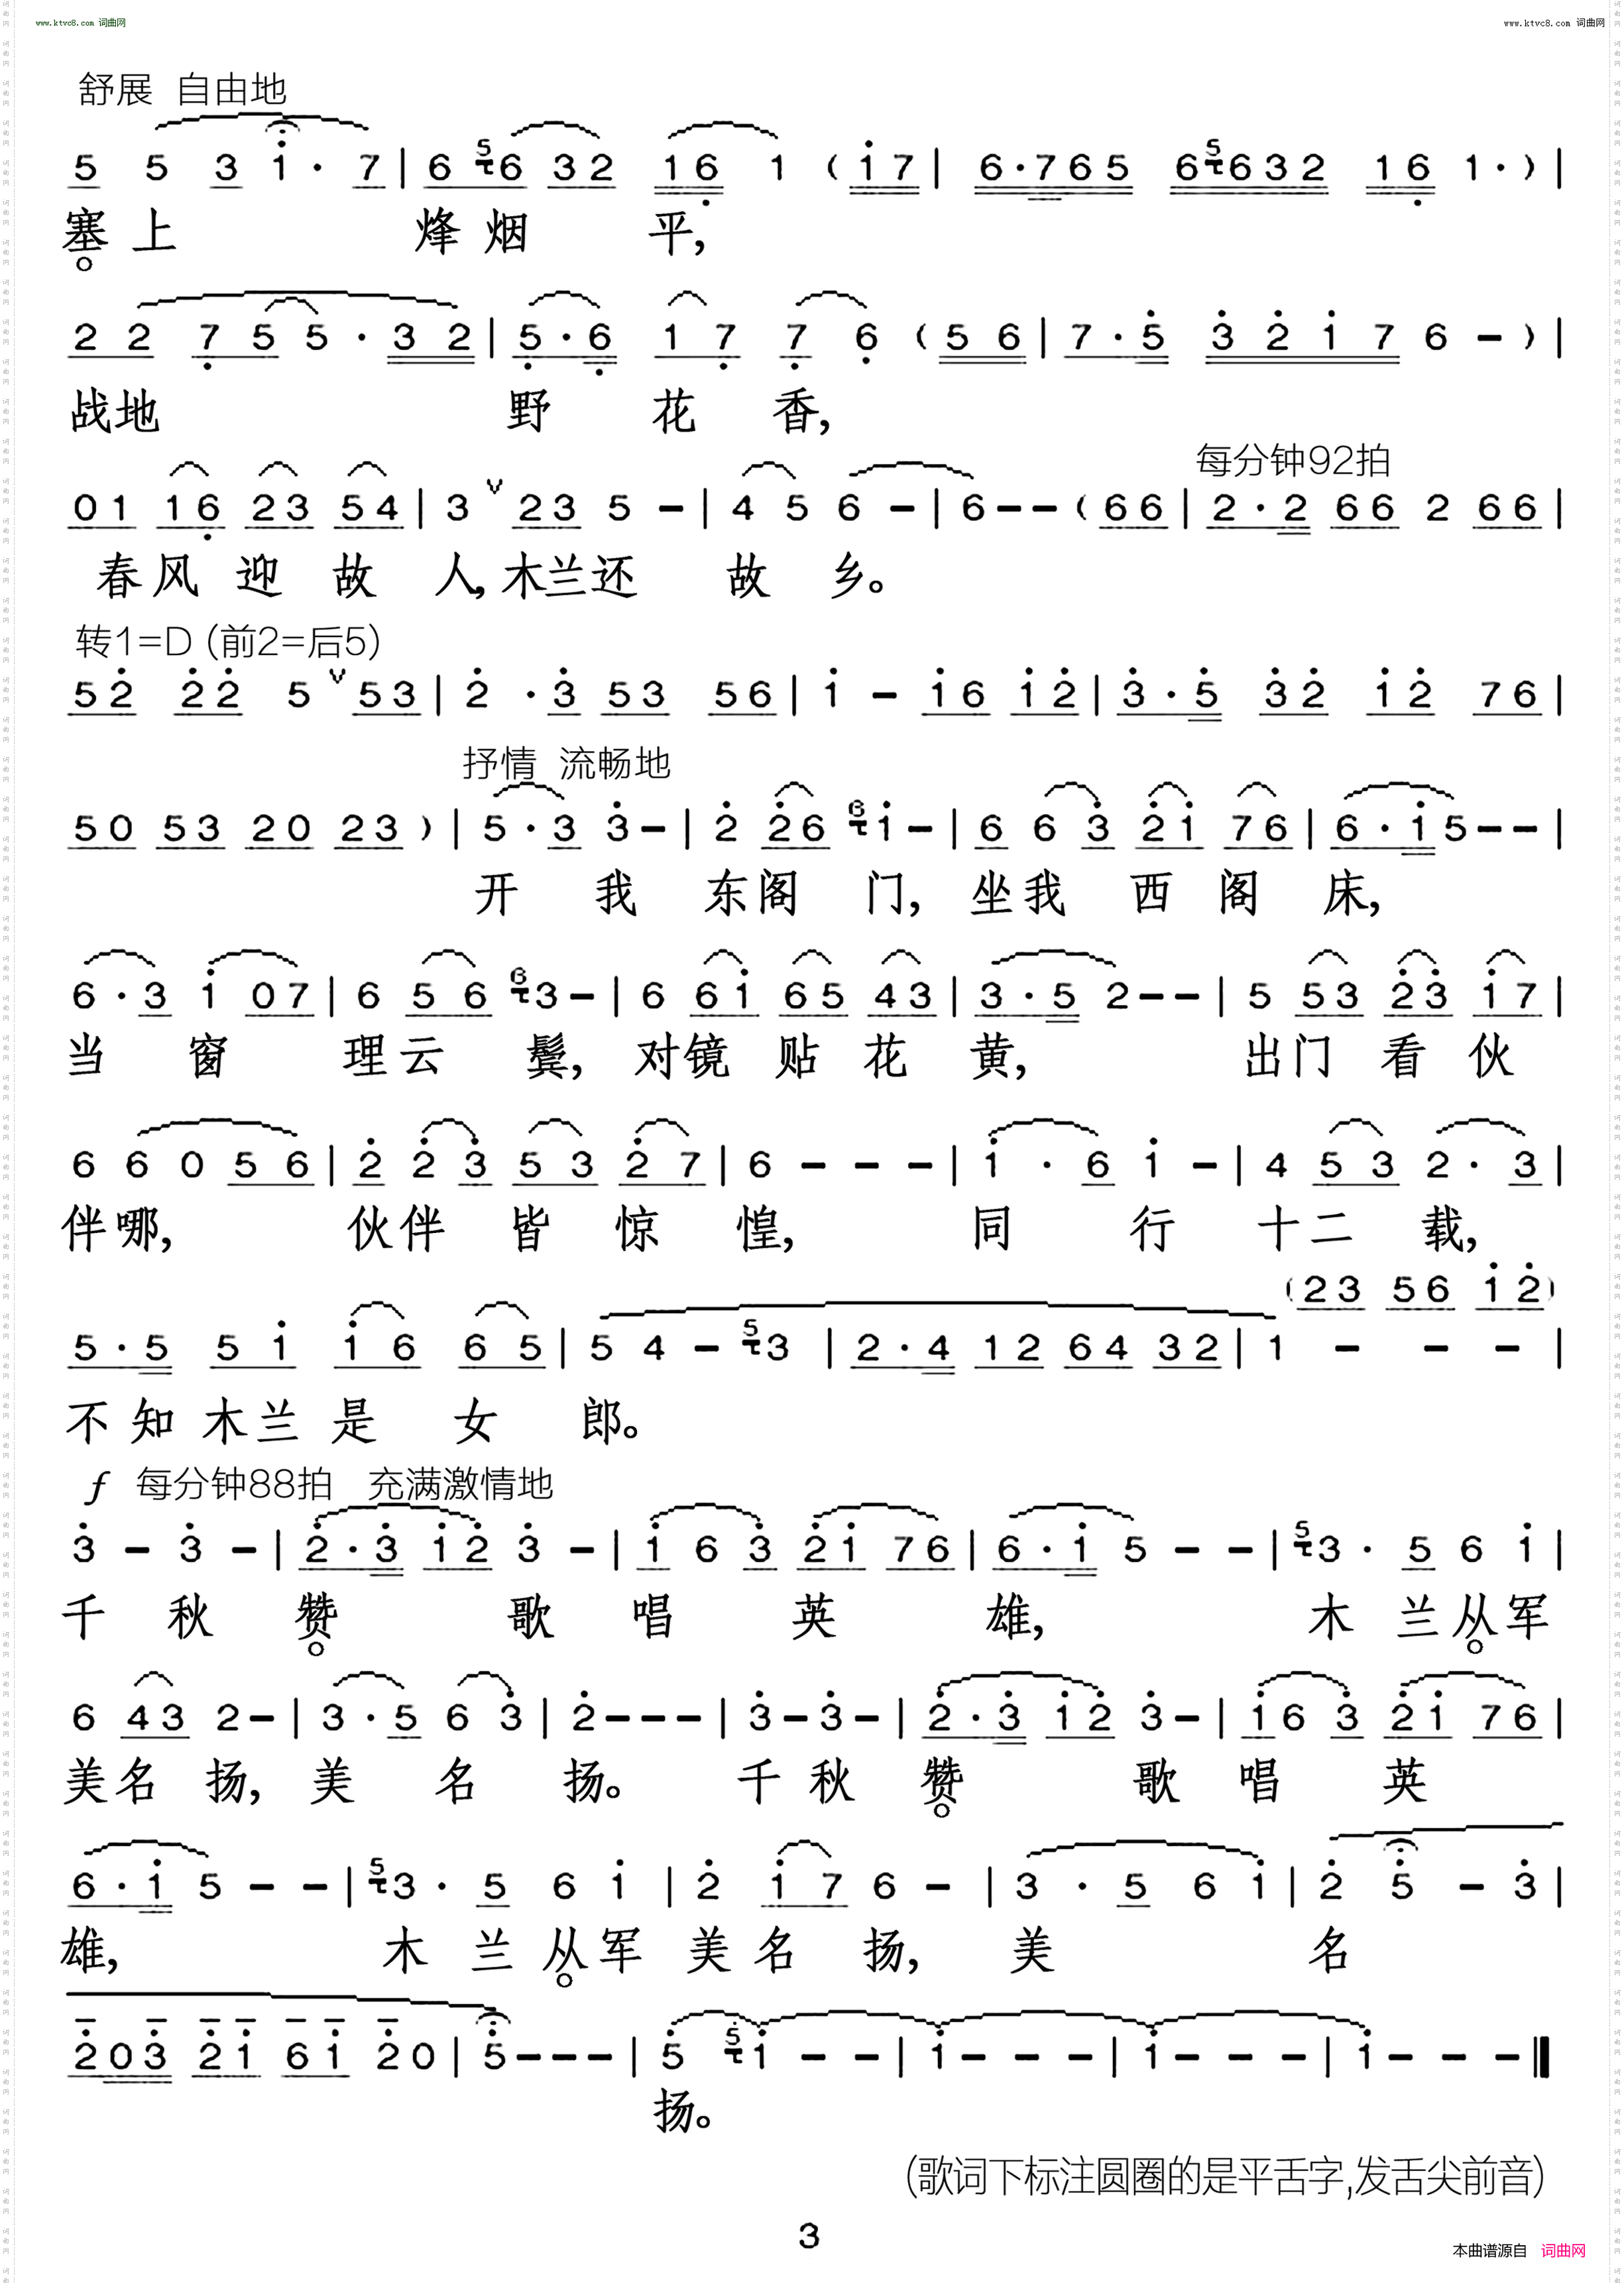 www.ktvc8.com 词曲网
www.ktvc8.com 词曲网
舒展 自由地
5 5 3 i · 7 | 6 5 6 3 2 1 6 1 ( i 7 | 6 · 7 6 5 6 5 6 3 2 1 6 1 · ) |
塞上 烽烟 平,
2 2 7 5 5 · 3 2 | 5 · 6 1 7 7 6 ( 5 6 | 7 · 5 3 2 i 7 6 – ) |
战地 野 花 香,
每分钟92拍
0 1 1 6 2 3 5 4 | 3 v 2 3 5 – | 4 5 6 – | 6 – – ( 6 6 | 2 · 2 6 6 2 6 6 |
春风 迎 故 人,木兰还 故 乡。
转1=D (前2=后5)
5 2 2 2 5 v 5 3 | 2 · 3 5 3 5 6 | i – i 6 i 2 | 3 · 5 3 2 i 2 7 6 |
抒情 流畅地
5 0 5 3 2 0 2 3 ) | 5 · 3 3 – | 2 2 6 6 i – | 6 6 3 2 i 7 6 | 6 · i 5 – – |
开 我 东阁 门, 坐我 西 阁 床,
6 · 3 i 0 7 | 6 5 6 6 3 – | 6 6 i 6 5 4 3 | 3 · 5 2 – – | 5 5 3 2 3 i 7 |
当 窗 理云 鬓, 对镜 贴 花 黄, 出门 看 伙
6 6 0 5 6 | 2 2 3 5 3 2 7 | 6 – – – | i · 6 i – | 4 5 3 2 · 3 |
伴哪, 伙伴 皆 惊 惶, 同 行 十二 载,
( 2 3 5 6 i 2 )
5 · 5 5 i i 6 6 5 | 5 4 – 5 3 | 2 · 4 1 2 6 4 3 2 | 1 – – – |
不知木兰是 女 郎。
f 每分钟88拍 充满激情地
3 – 3 – | 2 · 3 i 2 3 – | i 6 3 2 i 7 6 | 6 · i 5 – – | 5 3 · 5 6 i |
千 秋 赞 歌 唱 英 雄, 木 兰从军
6 4 3 2 – | 3 · 5 6 3 | 2 – – – | 3 – 3 – | 2 · 3 i 2 3 – | i 6 3 2 i 7 6 |
美名 扬, 美 名 扬。 千秋 赞 歌 唱 英
6 · i 5 – – | 5 3 · 5 6 i | 2 i 7 6 – | 3 · 5 6 i | 2 5 – 3 |
雄, 木 兰从军 美名 扬, 美 名
2 0 3 2 i 6 i 2 0 | 5 – – – | 5 5 i – – | i – – – | i – – – | i – – – ‖
扬。
(歌词下标注圆圈的是平舌字,发舌尖前音)
3
本曲谱源自 词曲网